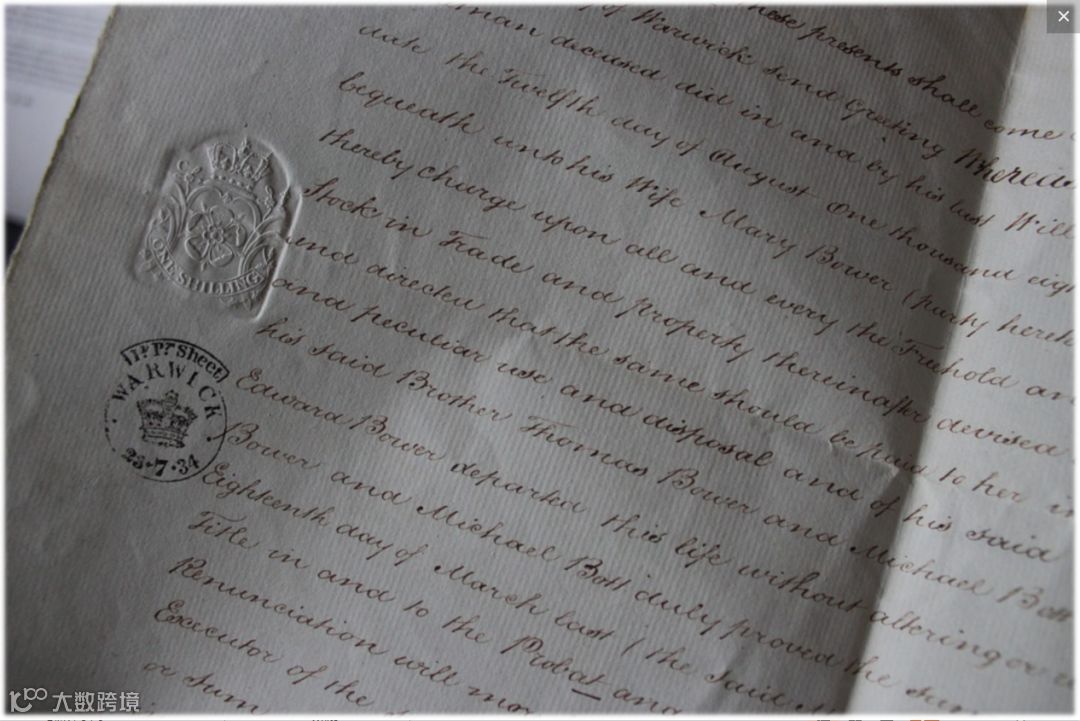 these presents shall come
of Warwick send Greeting Whereas
man deceased did in and by his last Will
date the Twelfth day of August One thousand eig
bequeath unto his Wife Mary Bower (party hereto
thereby charge upon all and every the Freehold an
Stock in Trade and property thereinafter devised
and directed that the same should be paid to her in
and peculiar use and disposal and of his said
his said Brother Thomas Bower and Michael Bott
Edward Bower departed this life without altering or
Bower and Michael Bott duly proved the sam
Eighteenth day of March last (the said
Title in and to the Probat and
Renunciation will mor
Executor of the
or sum
ONE SHILLING
1st Pr. Sheet
WARWICK
23·7·34
大数跨境